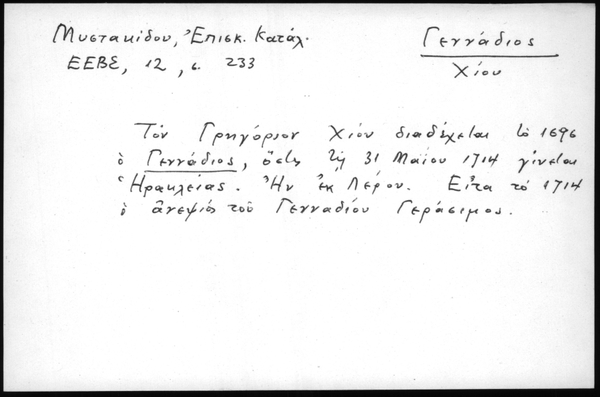 Μυστακίδου, Ἐπισκ. Κατάλ.
ΕΕΒΣ, 12, σ. 233
Γεννάδιος
Χίου
Τὸν Γρηγόριον Χίου διαδέχεται τὸ 1696
ὁ Γεννάδιος, ὅστις τῇ 31 Μαΐου 1714 γίνεται
Ἡρακλείας. Ἦν ἐκ Λέρου. Εἶτα τὸ 1714
ὁ ἀνεψιὸς τοῦ Γενναδίου Γεράσιμος.